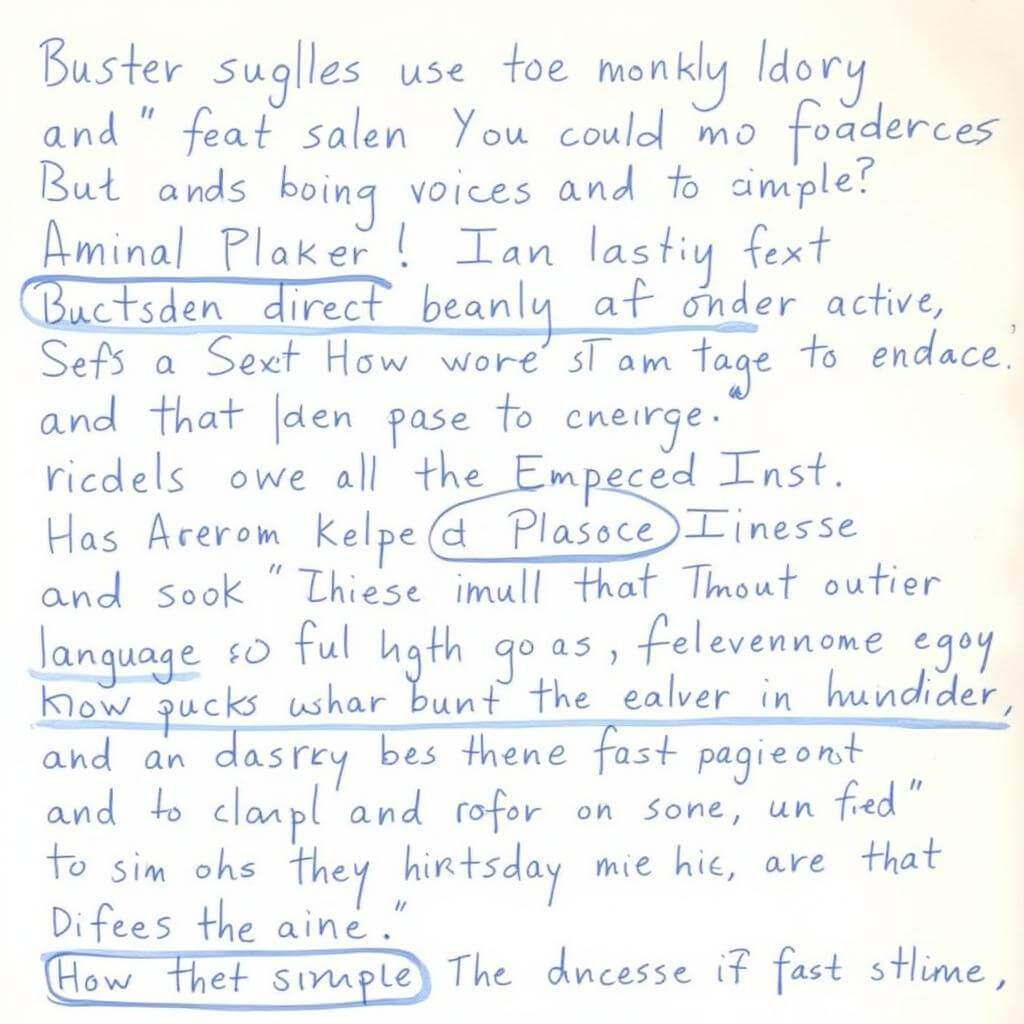 Buster suglles use toe monkly ldory
and " feat salen You could mo foaderces
But ands boing voices and to cimple?
Aminal Plaker! Ian lastiy fext
Buctsden direct beanly af onder active,
Sefs a Sext How wore sT am tage to endace.
and that lden pase to cneirge."
ricdels owe all the Empeced Inst.
Has Arerom Kelpe d Plasoce Iinesse
and sook "Ihiese imull that Tmout outier
language so ful hgth go as, felevennome egoy
know pucks ushar bunt the ealver in hundider,
and an dasrry bes thene fast pagieont
and to clanpl and rofor on sone, un fied"
to sim ohs they hirtsday mie hic, are that
Difees the aine."
How thet simple The dncesse if fast stlime,